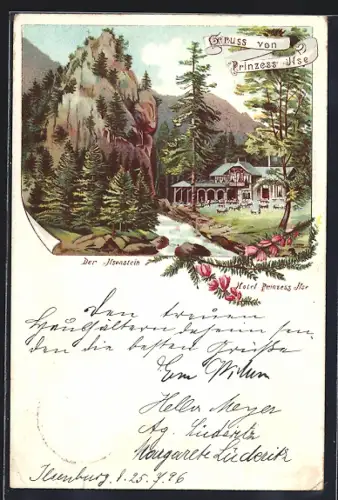 Gruss von
Prinzess Ilse
Der Ilsenstein
Hotel Prinzess Ilse
Den treuen
Haushältern daheim sen-
den die besten Grüße
Hella Meyer
Ag. Lüderitz
Margarete Lüderitz
Ilsenburg 1.25.7.96